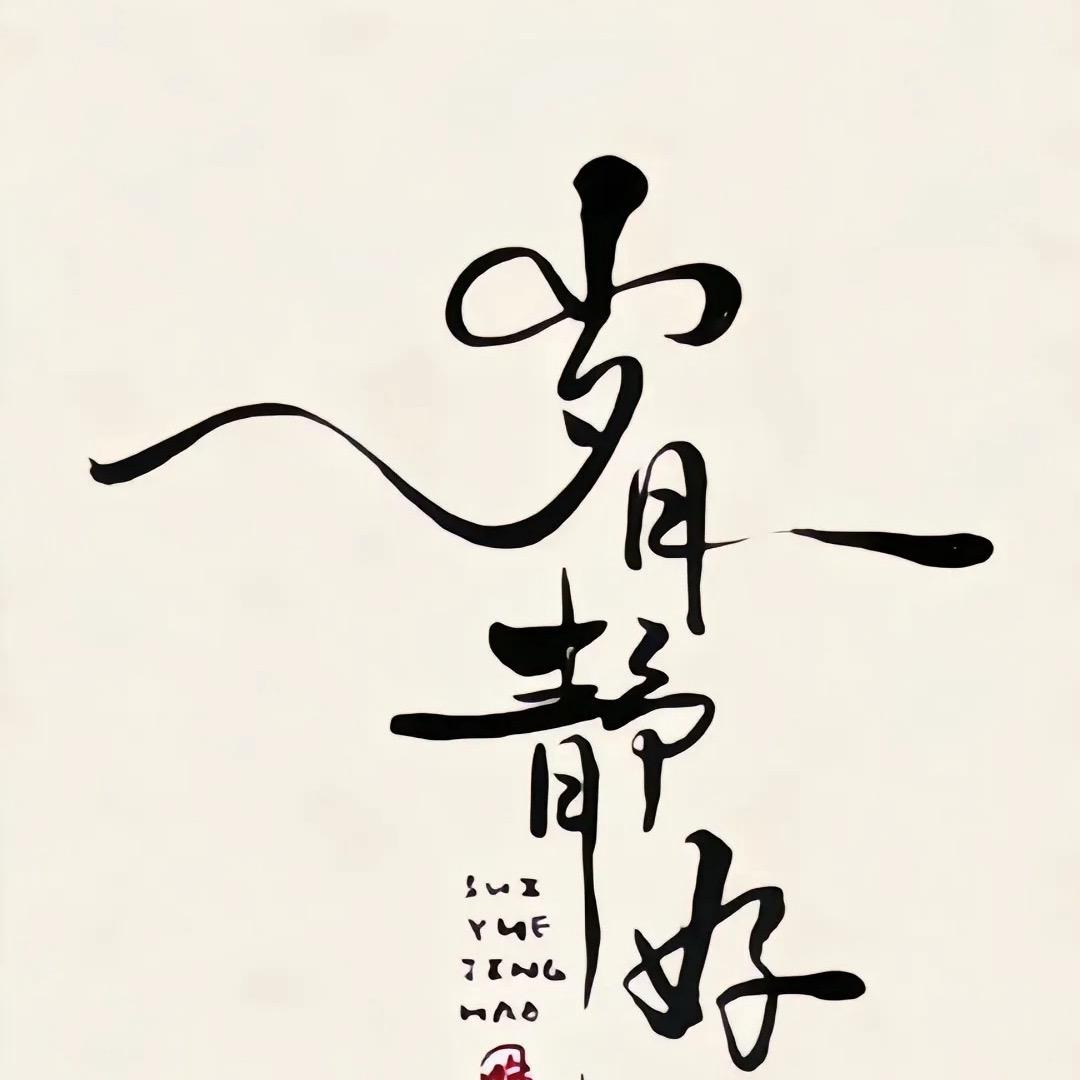 岁月
静
好
SUI
YUE
JING
HAO